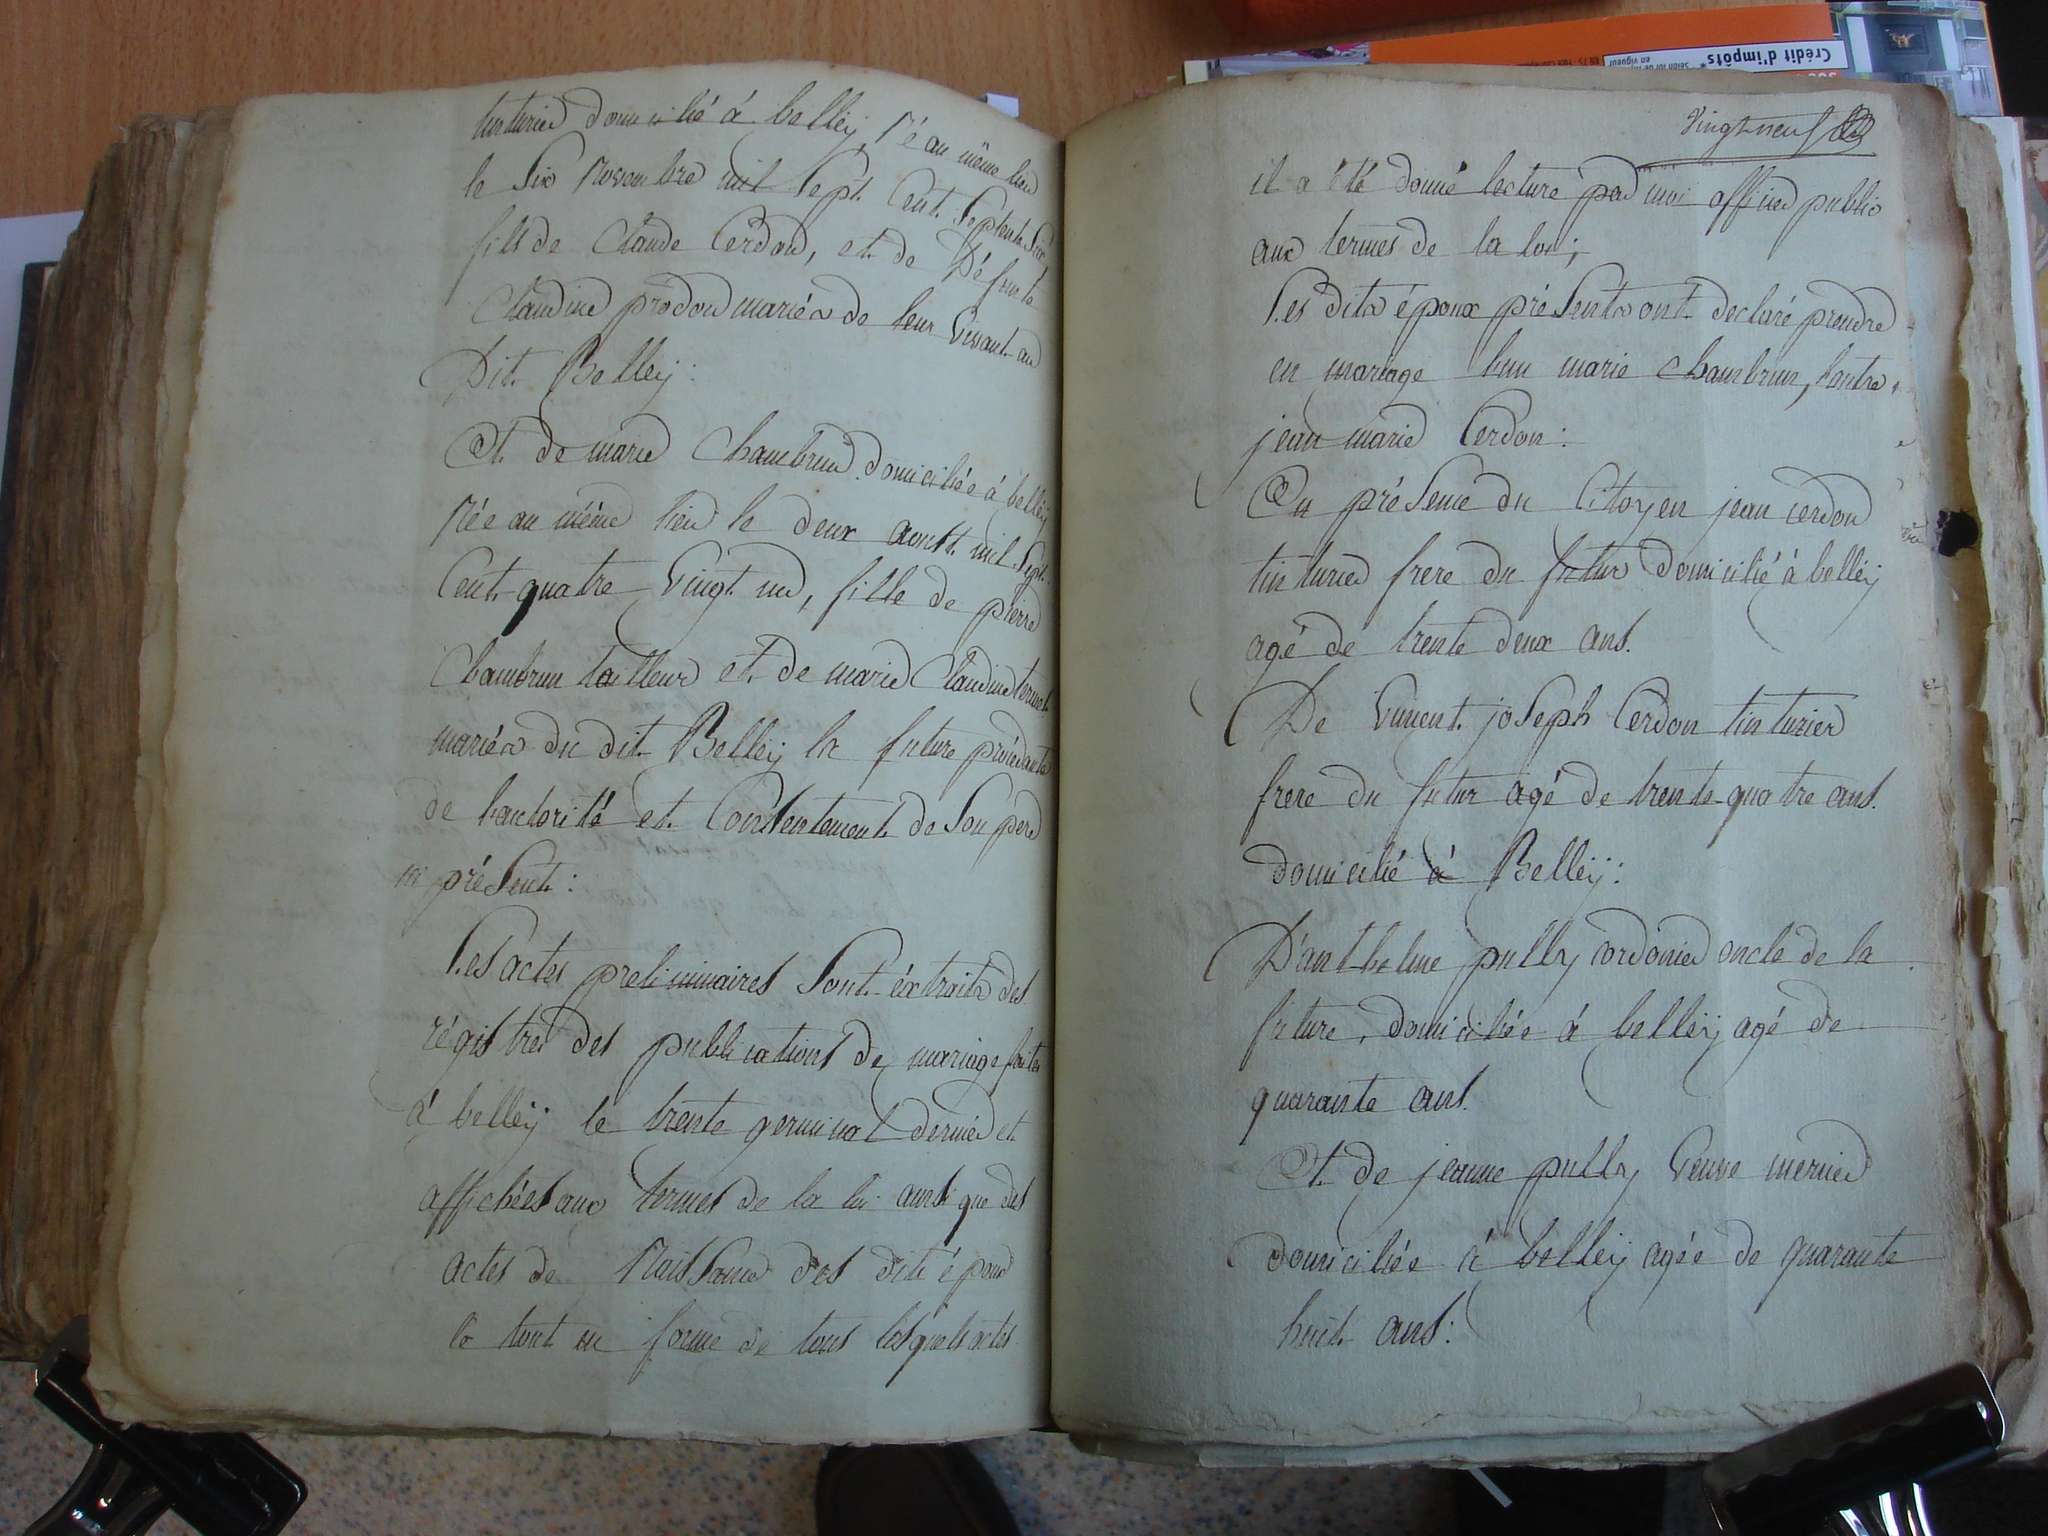 tinturier domicilié à belley, né au même lieu
le Six Novembre mil Sept. Cent. Septente Six
fils de Claude Cerdon, et. de Défunte
Claudine prodon mariés de leur vivant au
Dit. Belley:
Et. de marie Chambrun domiciliée à belley
Née au même lieu le deux aoust. mil Sept.
Cent. quatre Vingt un, fille de pierre
Chambrun tailleur et. de marie Claudine ternet
mariés du dit. Belley la future procédante
de l'autorité et. Consentement. de Son pere
ici présent:
Les actes preliminaires Sont. éxtraits des
régistres des publications de mariage faites
à belley le trente germinal dernier et
affichées aux termes de la loi ainsi que des
actes de Naissance des dits époux
le tout en forme de tous lesquels actes
Vingt neuf
il a été donné lecture par moi officier public
aux termes de la loi;
Les dits époux présents ont. declaré prendre
en mariage l'un marie Chambrun, l'autre
jean marie Cerdon:
En présence du Citoyen jean cerdon
tinturier frere du futur domicilié à belley
agé de trente deux ans.
De Vincent. joseph Cerdon tinturier
frere du futur agé de trente quatre ans.
domicilié à Belley:
D'anthelme pully cordonier oncle de la
future, domiciliée à belley agé de
quarante ans.
Et. de jeanne pully Veuve mernier
domiciliée à belley agée de quarante
huit ans:
Crédit d'impôts
* selon loi de
en vigueur